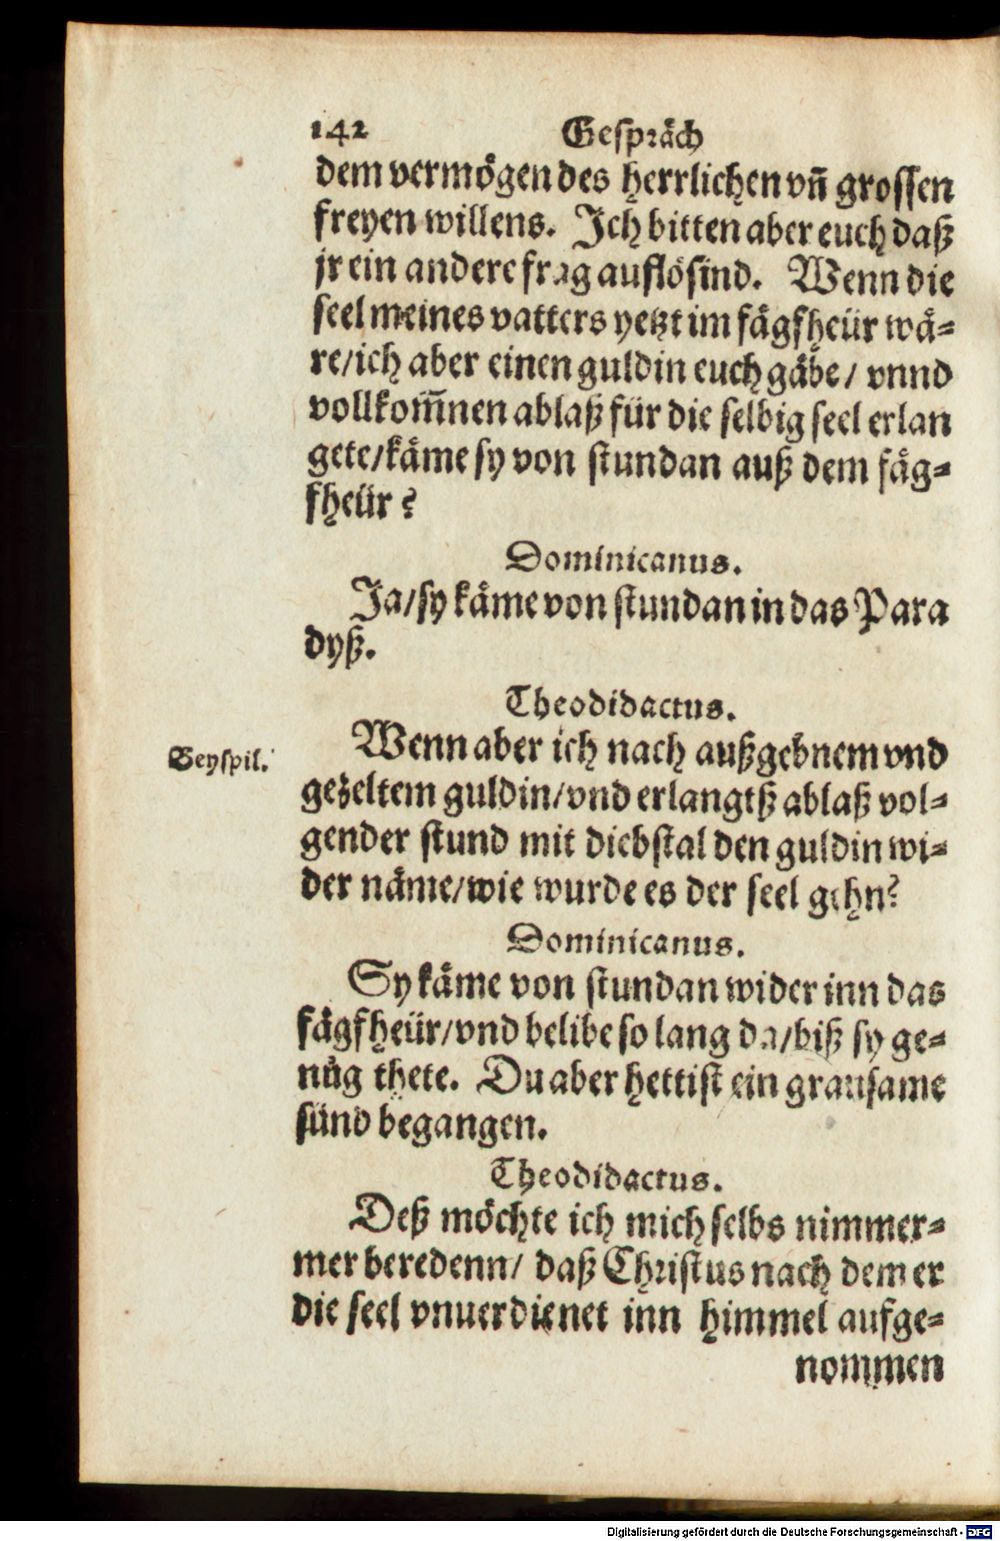 142 Gespräch
dem vermögen des herrlichen vñ grossen
freyen willens. Ich bitten aber euch daß
jr ein andere frag auflösind. Wenn die
seel meines vatters yetzt im fägfheür wä-
re/ich aber einen guldin euch gäbe/ vnnd
vollkom̃nen ablaß für die selbig seel erlan
gete/käme sy von stundan auß dem fäg-
fheür?
Dominicanus.
Ja/sy käme von stundan in das Para
dyß.
Theodidactus.
Beyspil.
Wenn aber ich nach außgebnem vnd
gezeltem guldin/vnd erlangtß ablaß vol-
gender stund mit diebstal den guldin wi-
der näme/wie wurde es der seel gehn?
Dominicanus.
Sy käme von stundan wider inn das
fägfheür/vnd belibe so lang da/biß sy ge-
nůg thete. Du aber hettist ein grausame
sünd begangen.
Theodidactus.
Deß möchte ich mich selbs nimmer-
mer beredenn/ daß Christus nach dem er
die seel vnuerdienet inn himmel aufge-
nommen
Digitalisierung gefördert durch die Deutsche Forschungsgemeinschaft - DFG